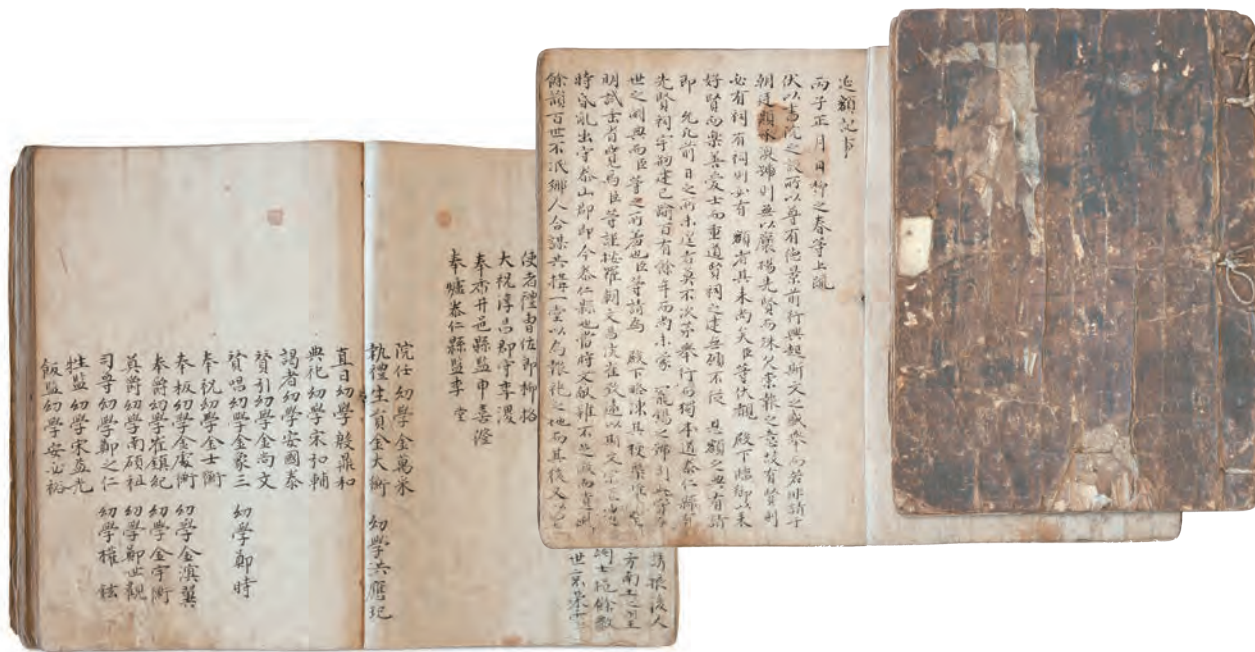 延額記事
丙子正月日柳之春等上疏
伏以書院之設所以尊有德景前行興起斯文之盛擧而若非請于
朝廷顯承渙號則無以褒揚先賢而殊欠崇報之意故有賢則
必有祠有祠則必有 額者其來尚矣臣等伏覩 殿下臨御以來
好賢而樂善愛士而重道賢祠之建無處不從 恩額之典有請
卽 允凡前日之所未遑者莫不次第擧行而獨本道泰仁縣有
先賢祠宇刱建已踰百有餘年而尚未蒙 寵錫之
世之闕典而臣等之所羞也臣等請爲 殿下略陳其梗槩惟 聖
明試垂省覽焉臣等謹按羅朝文昌侯崔致遠以
時衰亂出守泰山郡卽今泰仁縣也當時文獻雖不足徵而
餘韻百世不泯鄕人合謀共搆一堂以爲報祀之地而其後又以
使者禮曺佐郎柳格
大祝淳昌郡守李濅
奉香井邑縣監申善澄
奉爐泰仁縣監李堂
院任幼學金萬采
執禮生員金大衡 幼學洪應圮
直日幼學殷鼎和
典祀幼學宋扣輔
謁者幼學安國泰
贊引幼學金尙文
贊唱幼學金象三 幼學鄭時
奉祝幼學金士衡
奉板幼學金處衡 幼學金濱翼
奉爵幼學崔鎭紀 幼學金宇衡
奠爵幼學南碩祖 幼學鄭世觀
司尊幼學鄭之仁 幼學權鉉
牲監幼學宋益允
飯監幼學安必裕